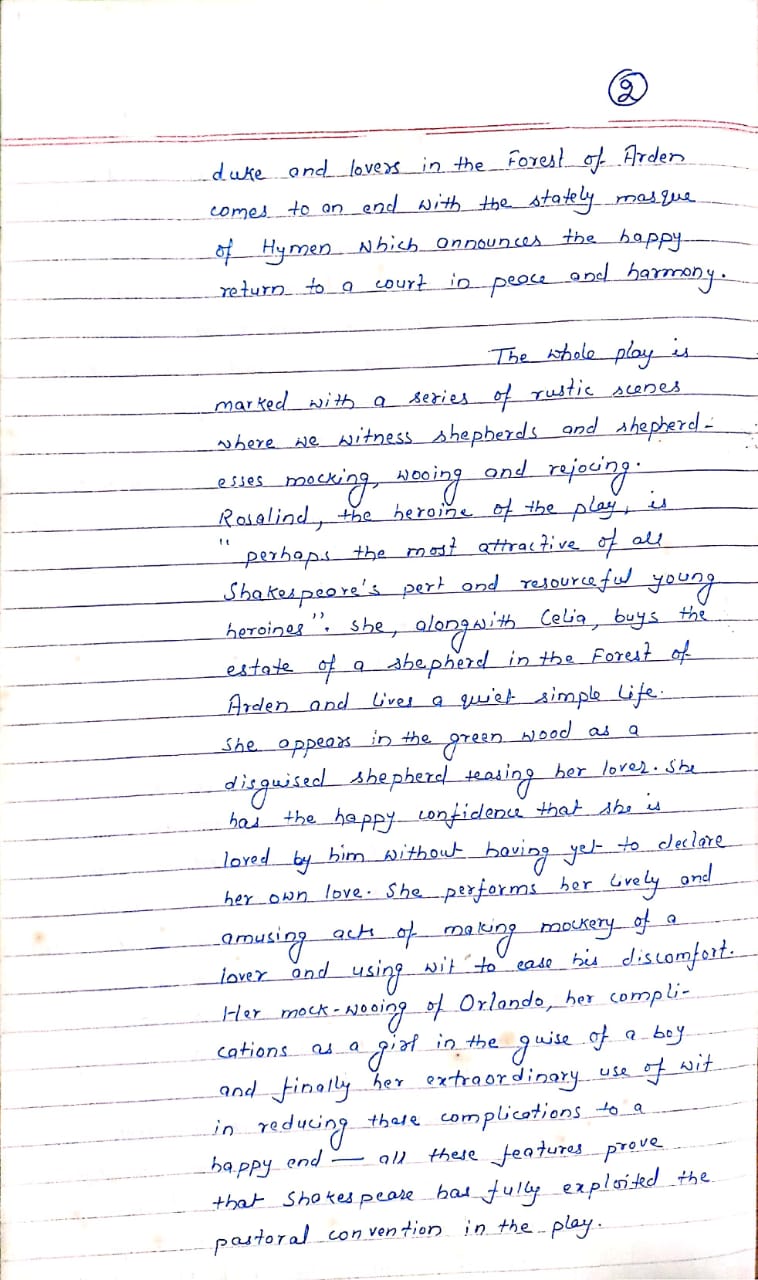 2
duke and lovers in the Forest of Arden
comes to an end with the stately masque
of Hymen which announces the happy
return to a court in peace and harmony.
The whole play is
marked with a series of rustic scenes
where we witness shepherds and shepherd-
esses mocking, wooing and rejocing.
Rosalind, the heroine of the play, is
"perhaps the most attractive of all
Shakespeare's pert and resourceful young
heroines". She, alongwith Celia, buys the
estate of a shepherd in the Forest of
Arden and lives a quiet simple life.
She appears in the green wood as a
disguised shepherd teasing her lover. She
has the happy confidence that she is
loved by him without having yet to declare
her own love. She performs her lively and
amusing acts of making mockery of a
lover and using wit to ease his discomfort.
Her mock-wooing of Orlando, her compli-
cations as a girl in the guise of a boy
and finally her extraordinary use of wit
in reducing these complications to a
happy end — all these features prove
that Shakespeare has fully exploited the
pastoral convention in the play.